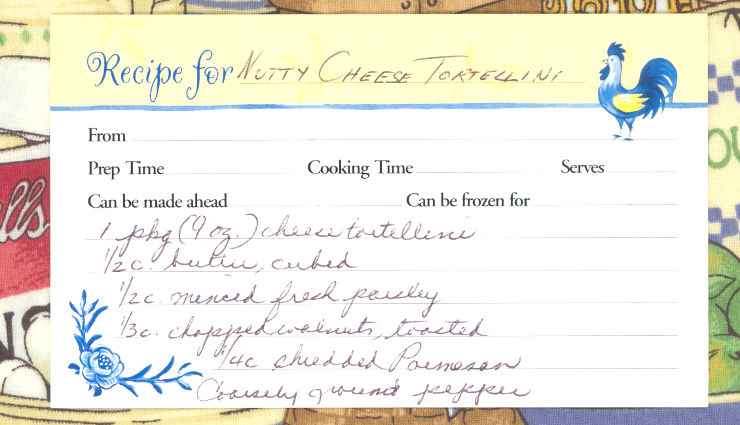 Recipe for Nutty Cheese Tortellini
From
Prep Time Cooking Time Serves
Can be made ahead Can be frozen for
1 pkg (9 oz.) cheese tortellini
1/2 c. butter, cubed
1/2 c. minced fresh parsley
1/3 c. chopped walnuts, toasted
1/4 c shredded Parmesan
Coarsely ground pepper
lls